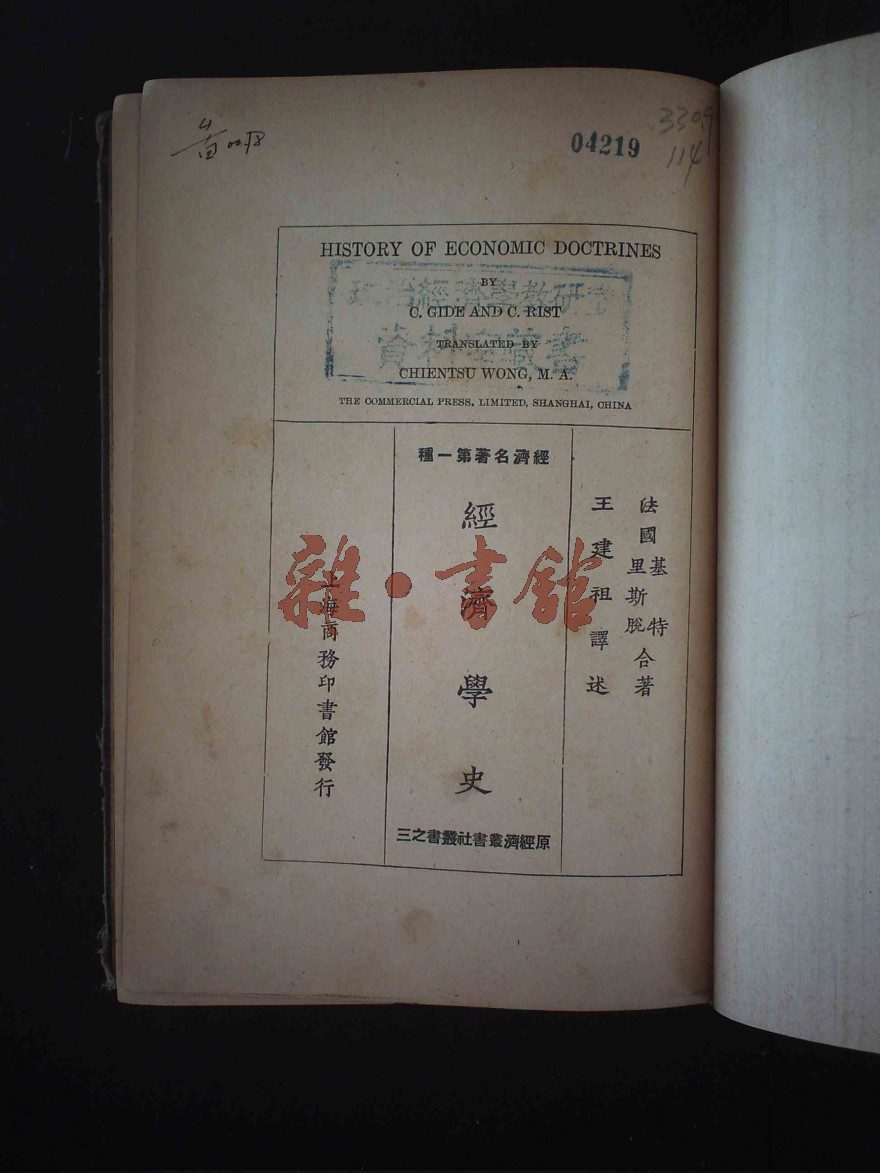 04219
330.9
114
HISTORY OF ECONOMIC DOCTRINES
BY
C. GIDE AND C. RIST
TRANSLATED BY
CHIENTSU WONG, M. A.
THE COMMERCIAL PRESS, LIMITED, SHANGHAI, CHINA
政治經濟學教研室
資料室藏書
法國基特里斯脫合著
王建祖譯述
種一第著名濟經
經濟學史
三之書叢社書叢濟經原
上海商務印書館發行
雜·書館